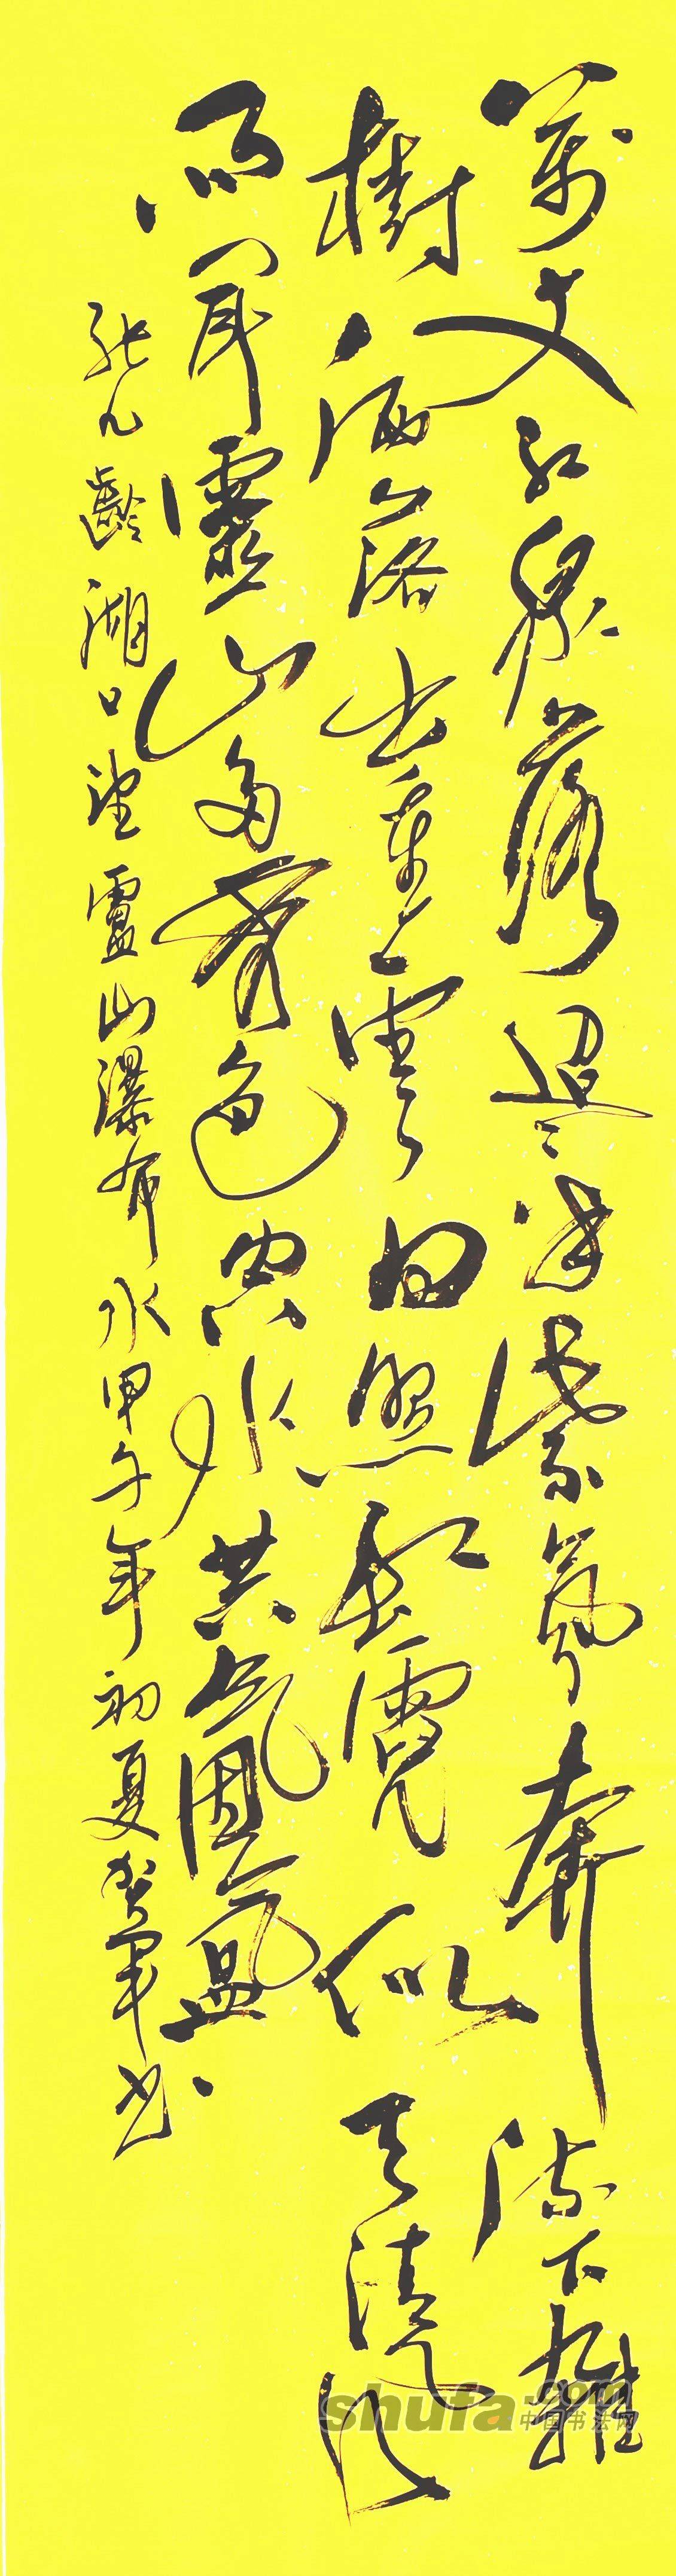 萬丈紅泉落迢々半紫氛奔流下雜
樹洒落出重雲日照虹霓似天清風
雨聞靈山多秀色空水共氤氲
張九齡湖口望盧山瀑布水甲午年初夏賀軍书
shufa.com
中国书法网